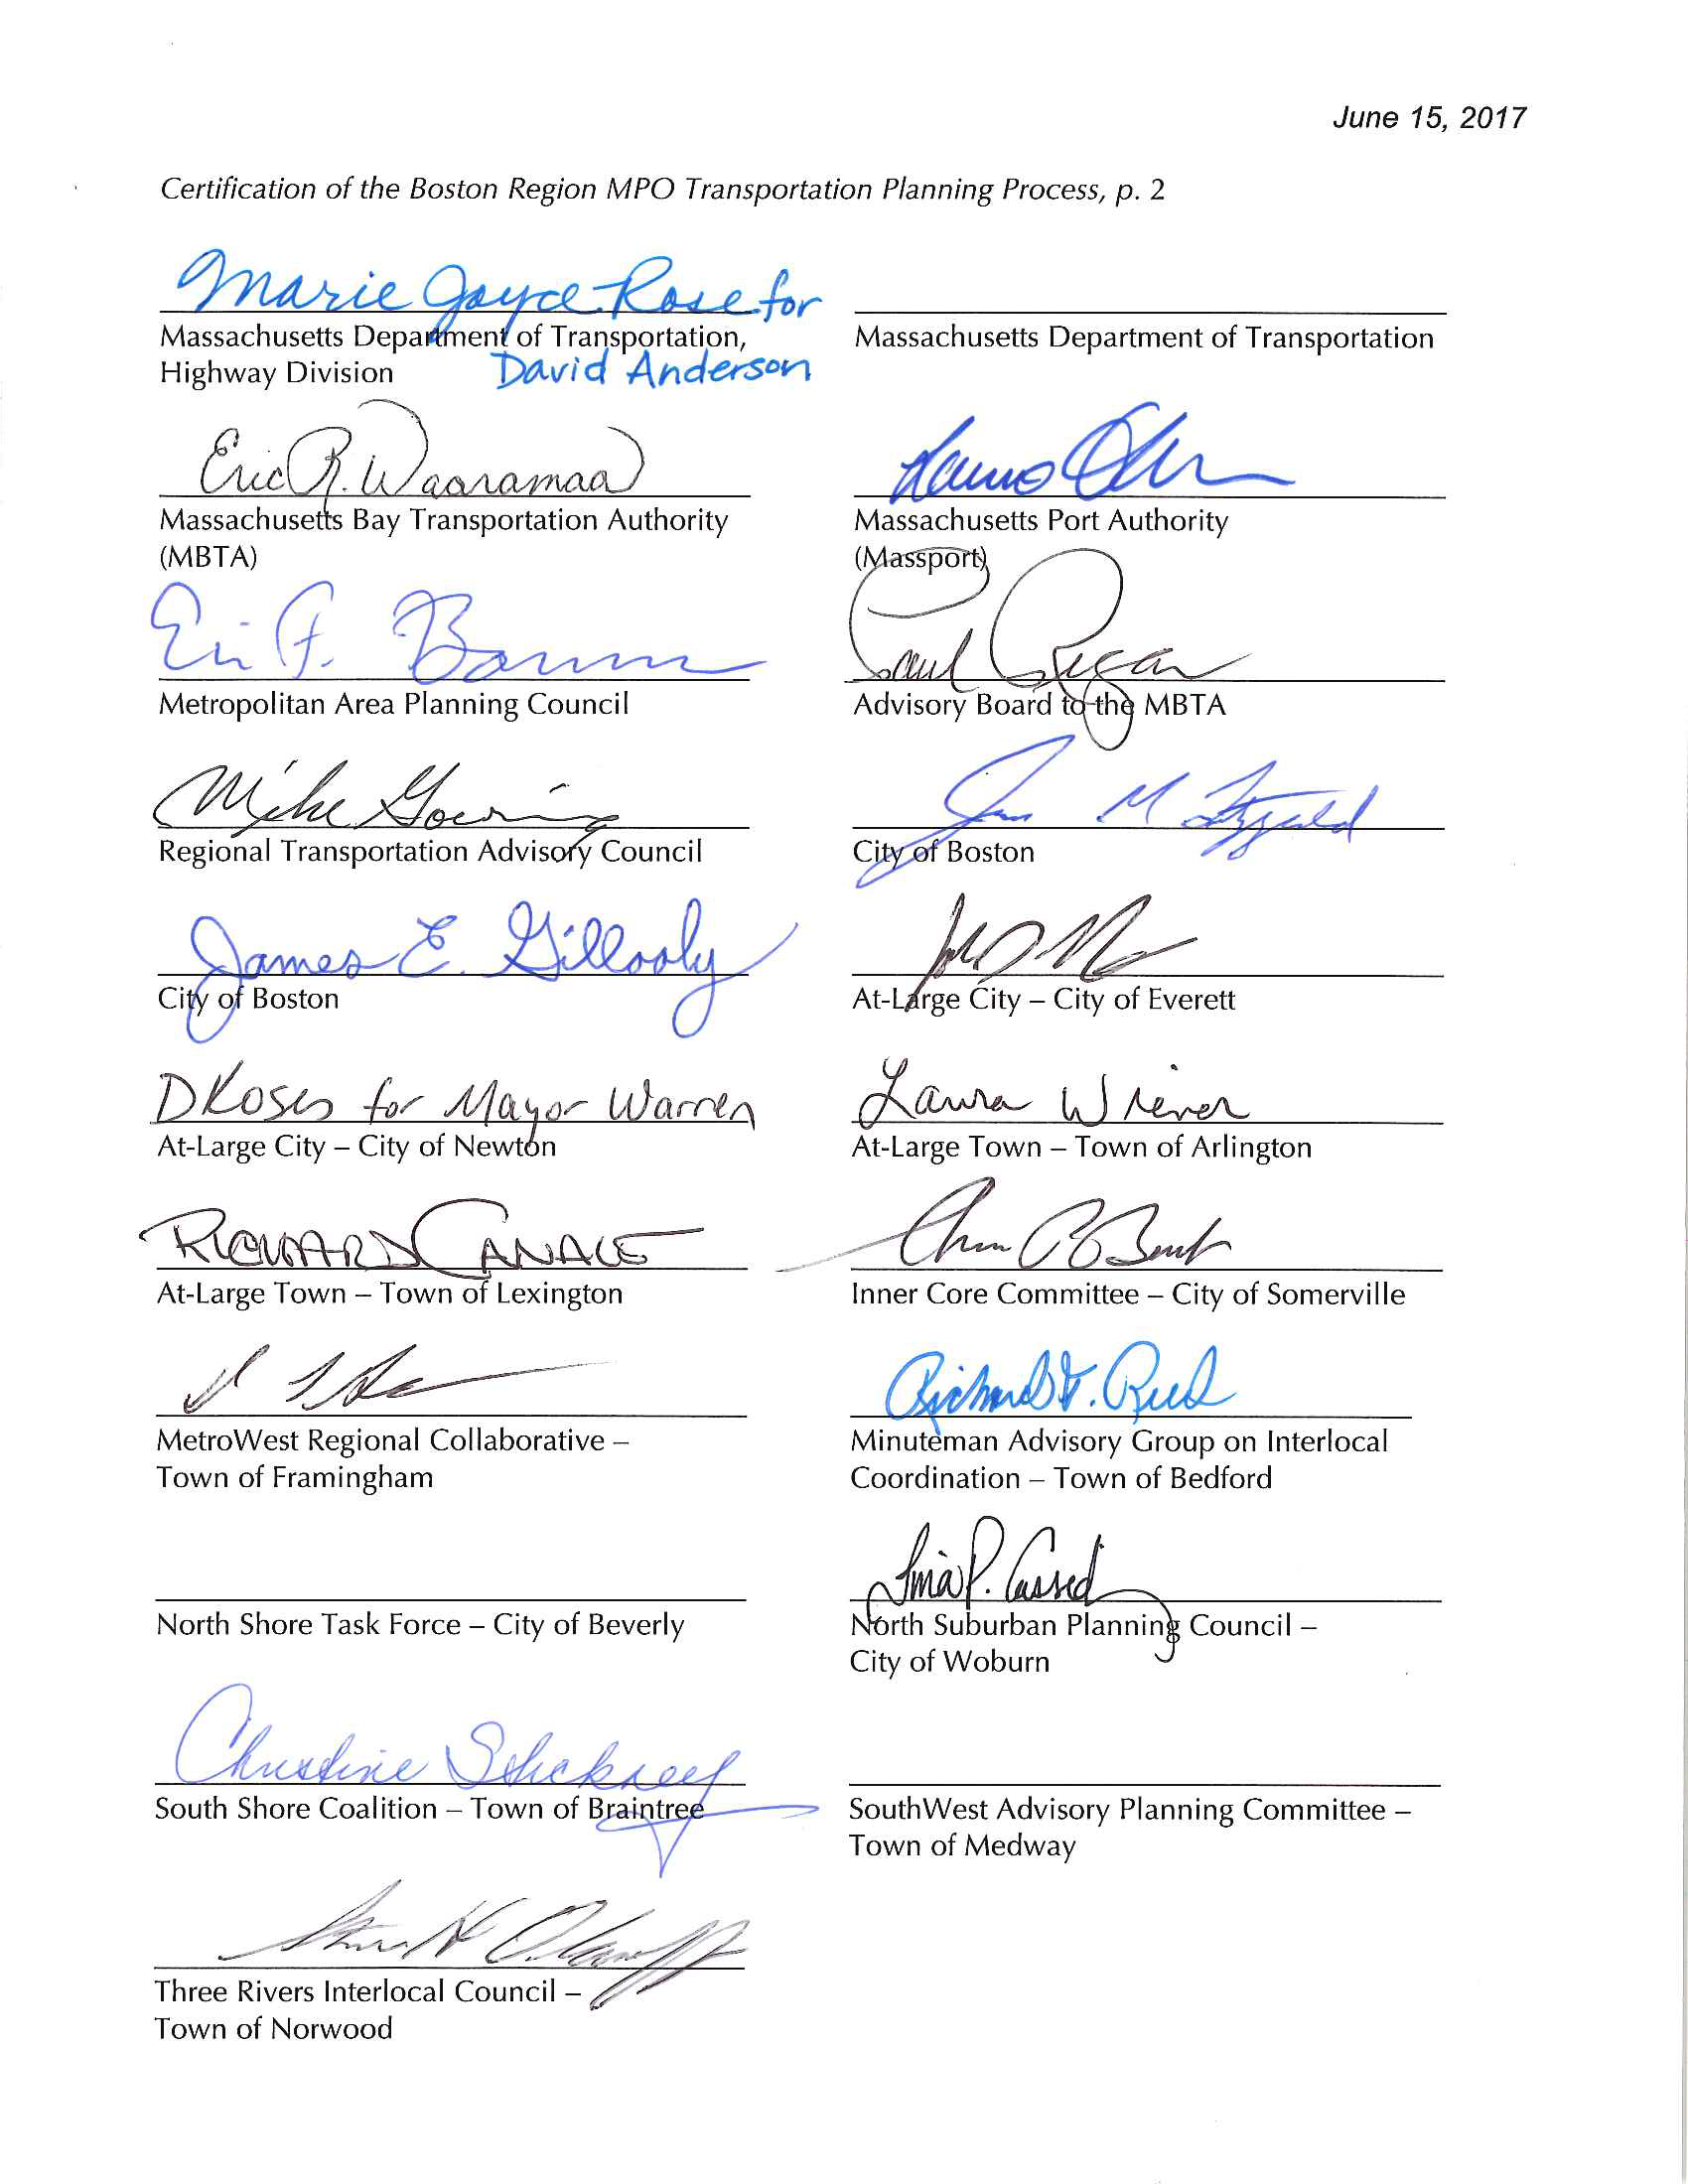 June 15, 2017
Certification of the Boston Region MPO Transportation Planning Process, p. 2
Marie Joyce Rose for
Massachusetts Department of Transportation,
Highway Division
David Anderson
Massachusetts Department of Transportation
Eric R. Waaramaa
Massachusetts Bay Transportation Authority
(MBTA)
Massachusetts Port Authority
(Massport)
Metropolitan Area Planning Council
Paul Regan
Advisory Board to the MBTA
Mike Gowing
Regional Transportation Advisory Council
M Fitzgerald
City of Boston
James E. Gillooly
City of Boston
At-Large City – City of Everett
DKoses for Mayor Warren
At-Large City – City of Newton
Laura Wiener
At-Large Town – Town of Arlington
Richard Canale
At-Large Town – Town of Lexington
Inner Core Committee – City of Somerville
MetroWest Regional Collaborative –
Town of Framingham
Richard T. Reed
Minuteman Advisory Group on Interlocal
Coordination – Town of Bedford
North Shore Task Force – City of Beverly
Tina P. Cassidy
North Suburban Planning Council –
City of Woburn
Christine Stickney
South Shore Coalition – Town of Braintree
SouthWest Advisory Planning Committee –
Town of Medway
Three Rivers Interlocal Council –
Town of Norwood